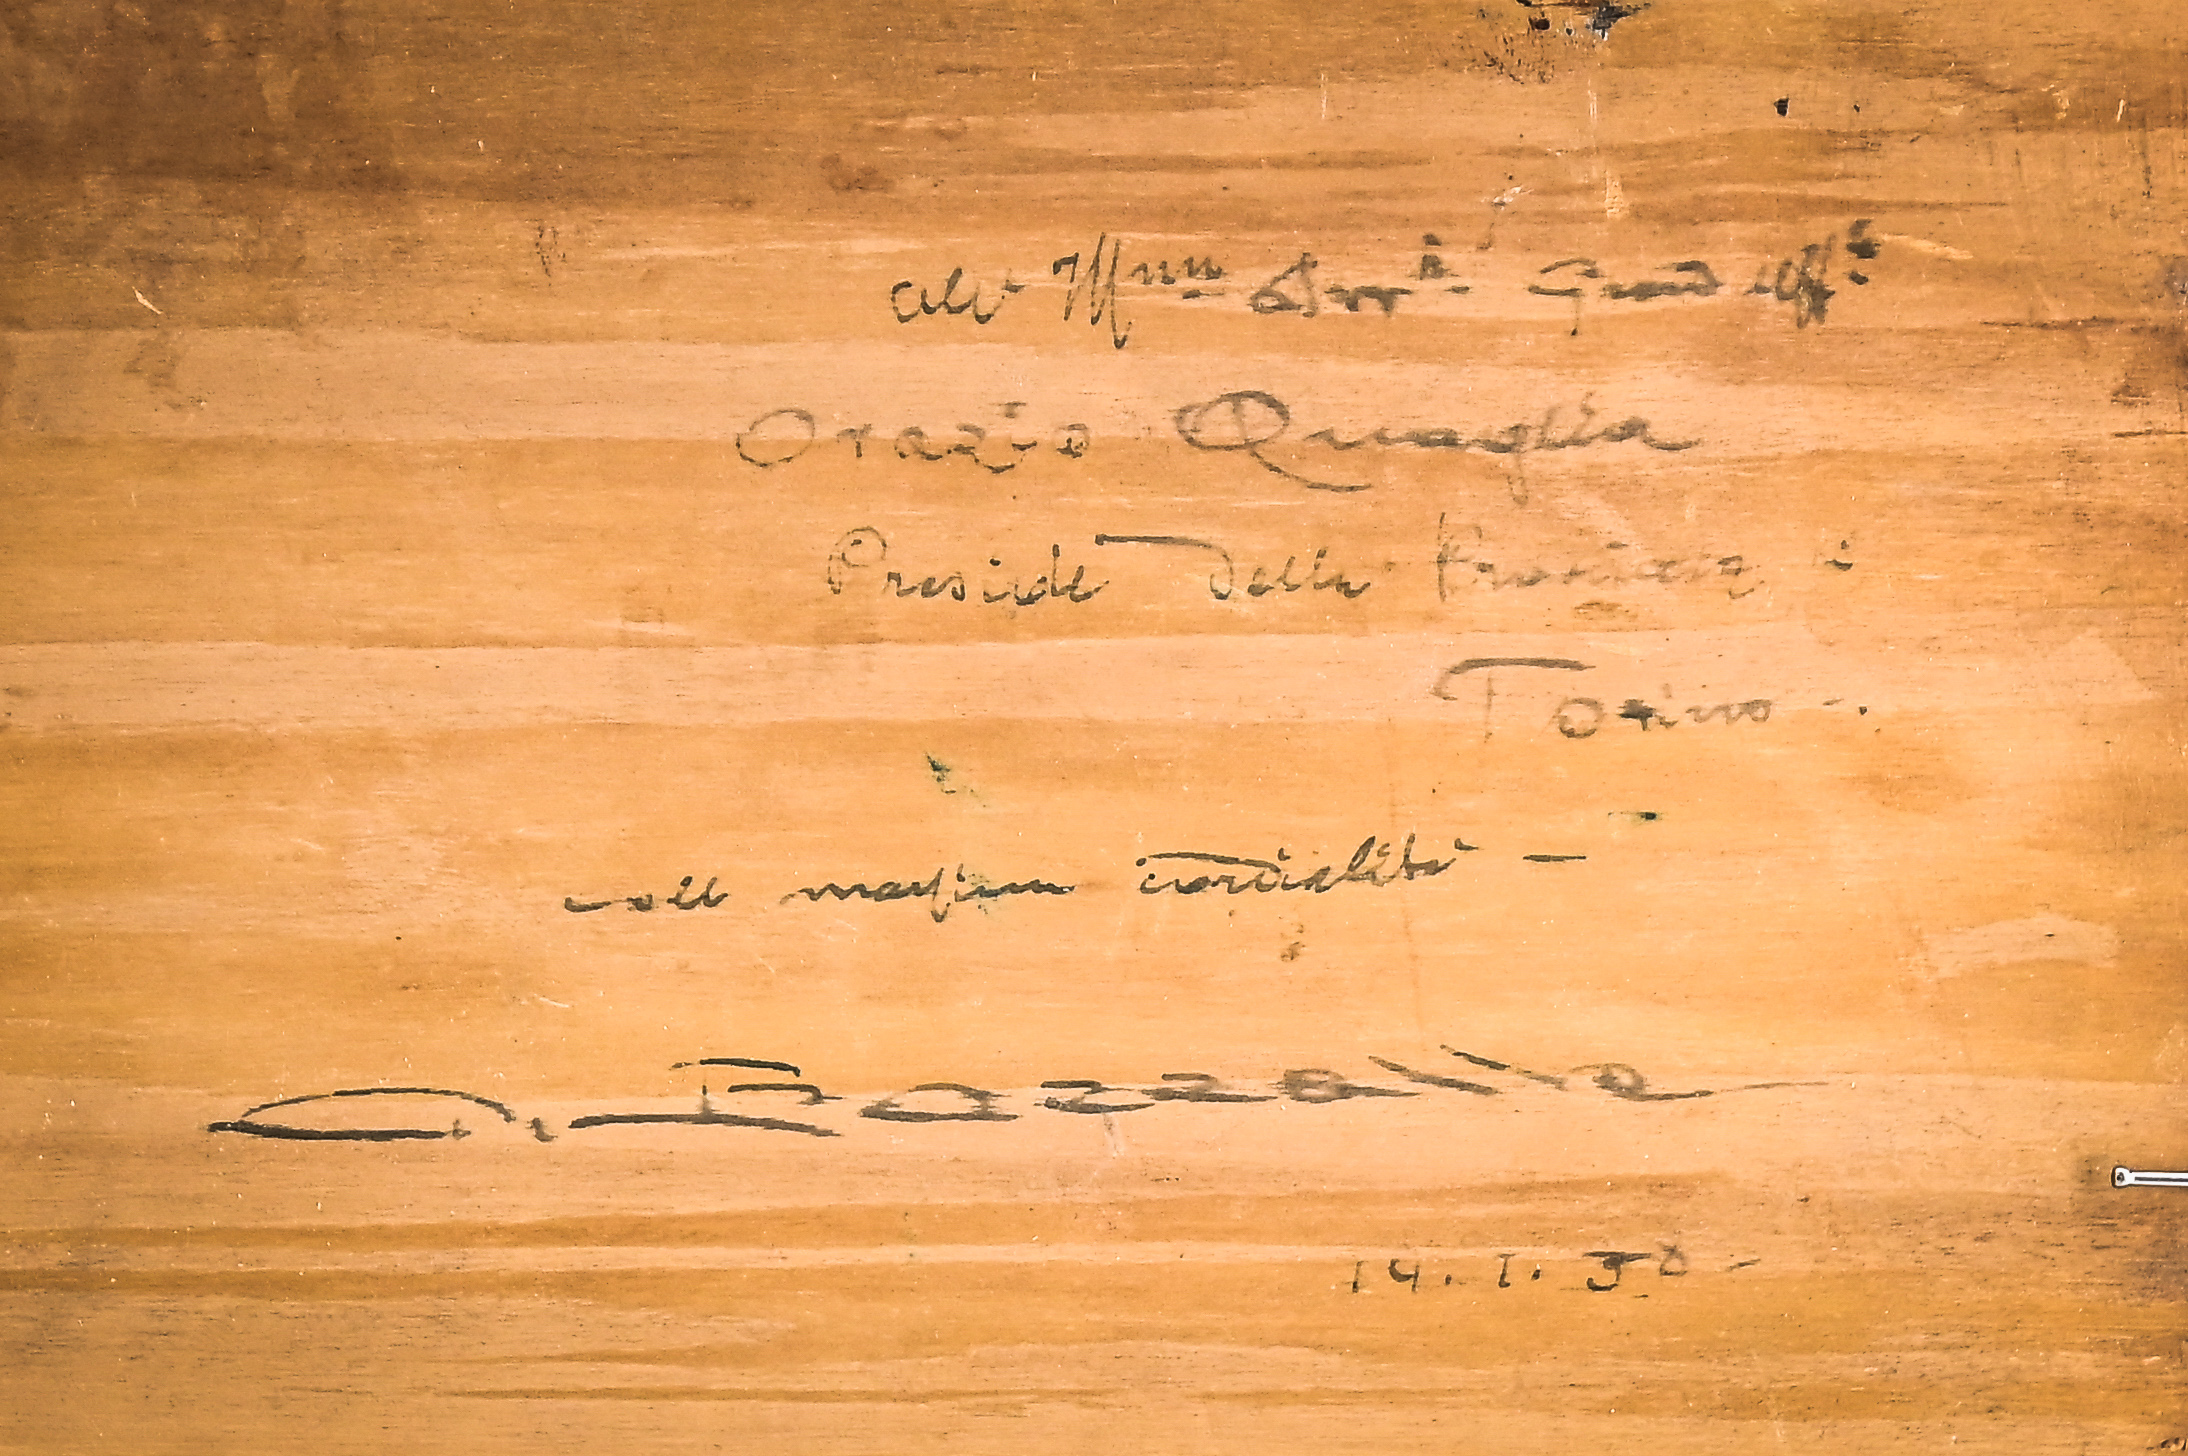 All' Ill.mo Sig.r Grand Uff.
Orazio Quaglia
Preside della Provincia di
Torino -.
colla massima cordialità -
G. Bozzalla
14. 1. 30 -